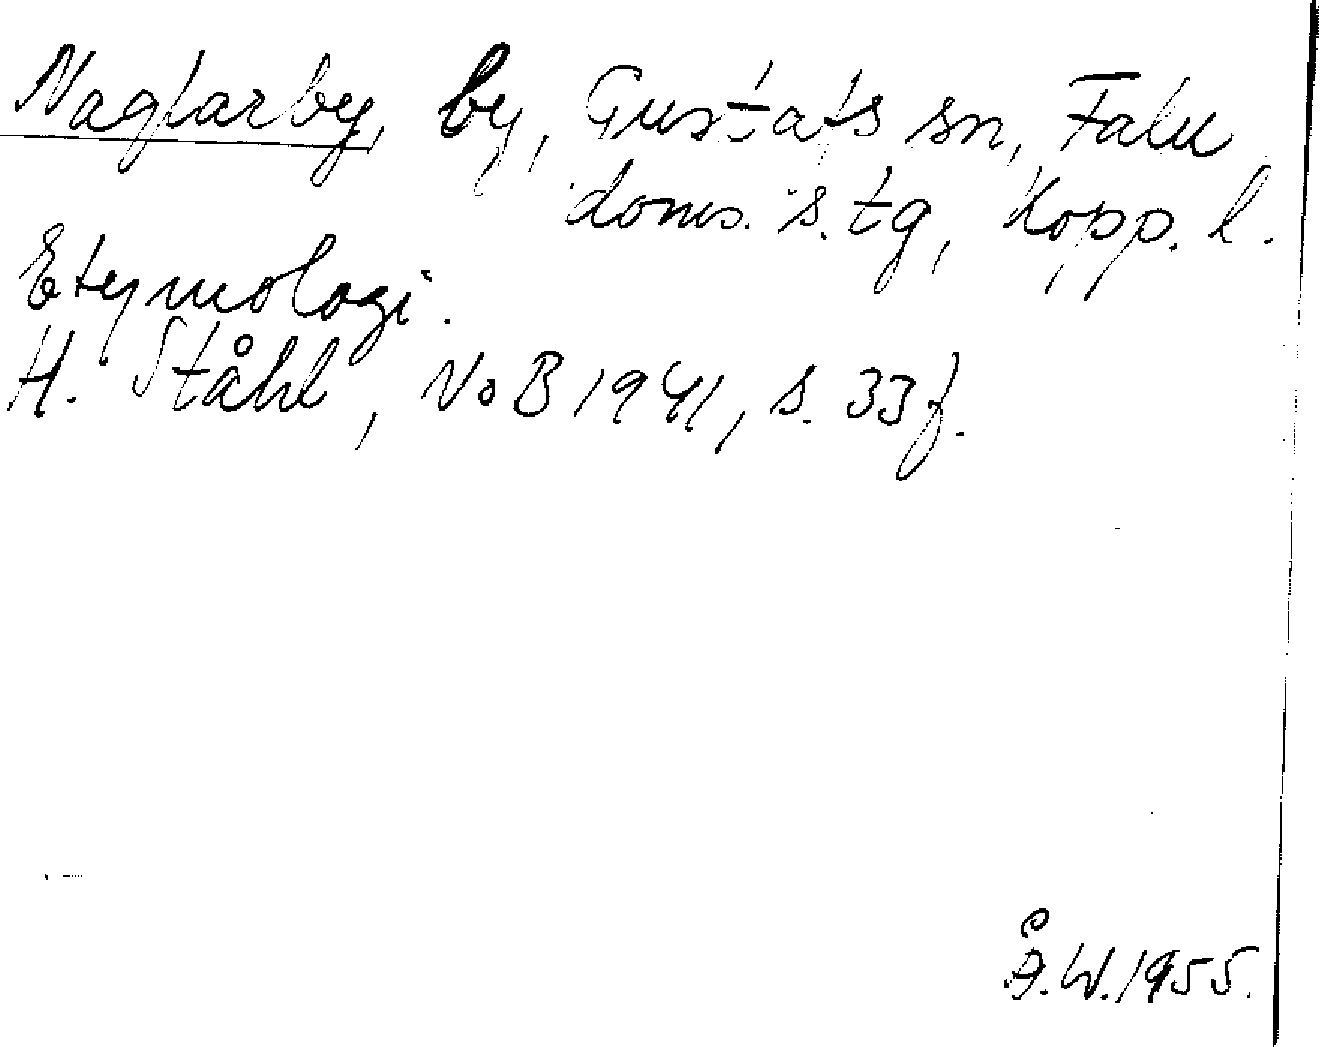 Naglarby, by, Gustafs sn, Falu
doms. s. tg, Kopp. l.
Etymologi.
H. Ståhl, NoB 1941, s. 33 f.
Å. W. 1955.